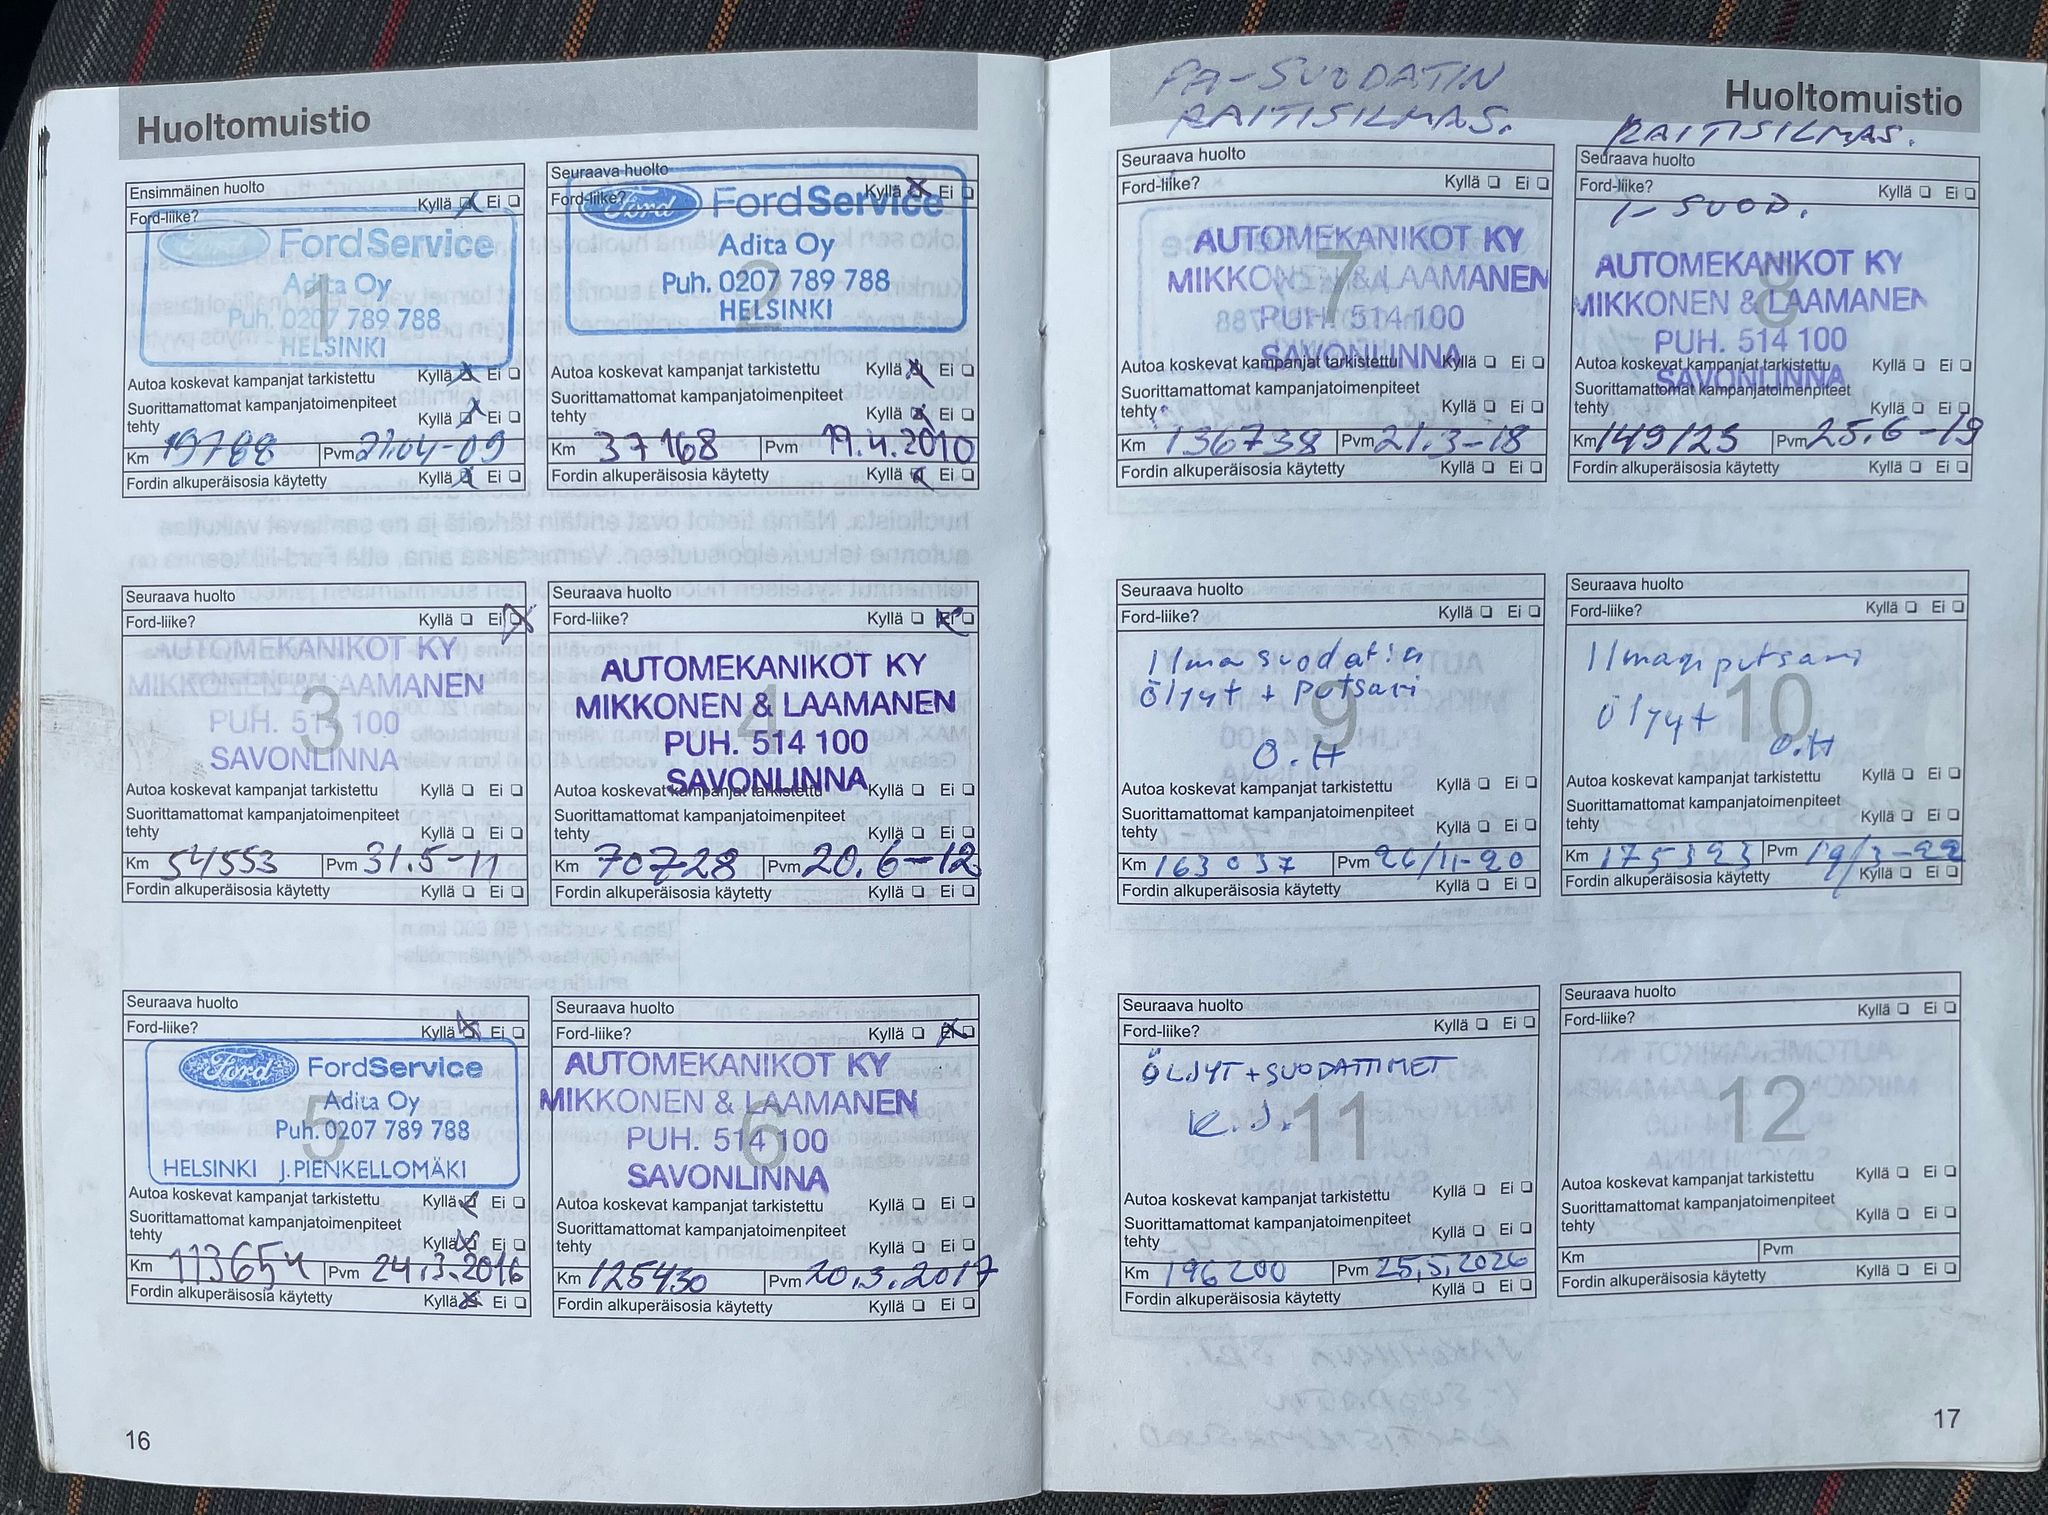 Huoltomuistio
Ensimmäinen huolto
Ford-liike? Kyllä Ei
Ford FordService
Adita Oy
1
Puh. 0207 789 788
HELSINKI
Autoa koskevat kampanjat tarkistettu Kyllä Ei
Suorittamattomat kampanjatoimenpiteet
tehty Kyllä Ei
Km 19788 Pvm 21.04-09
Fordin alkuperäisosia käytetty Kyllä Ei
Seuraava huolto
Ford-liike? Kyllä Ei
Ford FordService
Adita Oy
2
Puh. 0207 789 788
HELSINKI
Autoa koskevat kampanjat tarkistettu Kyllä Ei
Suorittamattomat kampanjatoimenpiteet
tehty Kyllä Ei
Km 37168 Pvm 19.4.2010
Fordin alkuperäisosia käytetty Kyllä Ei
Seuraava huolto
Ford-liike? Kyllä Ei
AUTOMEKANIKOT KY
MIKKONEN & LAAMANEN
3
PUH. 514 100
SAVONLINNA
Autoa koskevat kampanjat tarkistettu Kyllä Ei
Suorittamattomat kampanjatoimenpiteet
tehty Kyllä Ei
Km 54553 Pvm 31.5-11
Fordin alkuperäisosia käytetty Kyllä Ei
Seuraava huolto
Ford-liike? Kyllä Ei
AUTOMEKANIKOT KY
MIKKONEN & LAAMANEN
4
PUH. 514 100
SAVONLINNA
Autoa koskevat kampanjat tarkistettu Kyllä Ei
Suorittamattomat kampanjatoimenpiteet
tehty Kyllä Ei
Km 70728 Pvm 20.6-12
Fordin alkuperäisosia käytetty Kyllä Ei
Seuraava huolto
Ford-liike? Kyllä Ei
Ford FordService
Adita Oy
5
Puh. 0207 789 788
HELSINKI J.PIENKELLOMÄKI
Autoa koskevat kampanjat tarkistettu Kyllä Ei
Suorittamattomat kampanjatoimenpiteet
tehty Kyllä Ei
Km 113654 Pvm 24.3.2016
Fordin alkuperäisosia käytetty Kyllä Ei
Seuraava huolto
Ford-liike? Kyllä Ei
AUTOMEKANIKOT KY
MIKKONEN & LAAMANEN
6
PUH. 514 100
SAVONLINNA
Autoa koskevat kampanjat tarkistettu Kyllä Ei
Suorittamattomat kampanjatoimenpiteet
tehty Kyllä Ei
Km 125430 Pvm 20.3.2017
Fordin alkuperäisosia käytetty Kyllä Ei
16
Huoltomuistio
PA-SUODATIN
RAITISILMAS.
Seuraava huolto
Ford-liike? Kyllä Ei
AUTOMEKANIKOT KY
MIKKONEN & LAAMANEN
7
PUH. 514 100
SAVONLINNA
Autoa koskevat kampanjat tarkistettu Kyllä Ei
Suorittamattomat kampanjatoimenpiteet
tehty Kyllä Ei
Km 136738 Pvm 21.3-18
Fordin alkuperäisosia käytetty Kyllä Ei
RAITISILMAS.
Seuraava huolto
Ford-liike? Kyllä Ei
I-SUOD.
AUTOMEKANIKOT KY
MIKKONEN & LAAMANEN
8
PUH. 514 100
SAVONLINNA
Autoa koskevat kampanjat tarkistettu Kyllä Ei
Suorittamattomat kampanjatoimenpiteet
tehty Kyllä Ei
Km 149123 Pvm 25.6-19
Fordin alkuperäisosia käytetty Kyllä Ei
Seuraava huolto
Ford-liike? Kyllä Ei
Ilmasuodatin
Öljyt + putsari
9
O.H
Autoa koskevat kampanjat tarkistettu Kyllä Ei
Suorittamattomat kampanjatoimenpiteet
tehty Kyllä Ei
Km 163037 Pvm 26/11-20
Fordin alkuperäisosia käytetty Kyllä Ei
Seuraava huolto
Ford-liike? Kyllä Ei
Ilman putsari
Öljyt 10
O.H
Autoa koskevat kampanjat tarkistettu Kyllä Ei
Suorittamattomat kampanjatoimenpiteet
tehty Kyllä Ei
Km 175323 Pvm 19/3-22
Fordin alkuperäisosia käytetty Kyllä Ei
Seuraava huolto
Ford-liike? Kyllä Ei
ÖLJYT + SUODATTIMET
K.J. 11
Autoa koskevat kampanjat tarkistettu Kyllä Ei
Suorittamattomat kampanjatoimenpiteet
tehty Kyllä Ei
Km 196200 Pvm 25.5.2026
Fordin alkuperäisosia käytetty Kyllä Ei
Seuraava huolto
Ford-liike? Kyllä Ei
12
Autoa koskevat kampanjat tarkistettu Kyllä Ei
Suorittamattomat kampanjatoimenpiteet
tehty Kyllä Ei
Km Pvm
Fordin alkuperäisosia käytetty Kyllä Ei
17